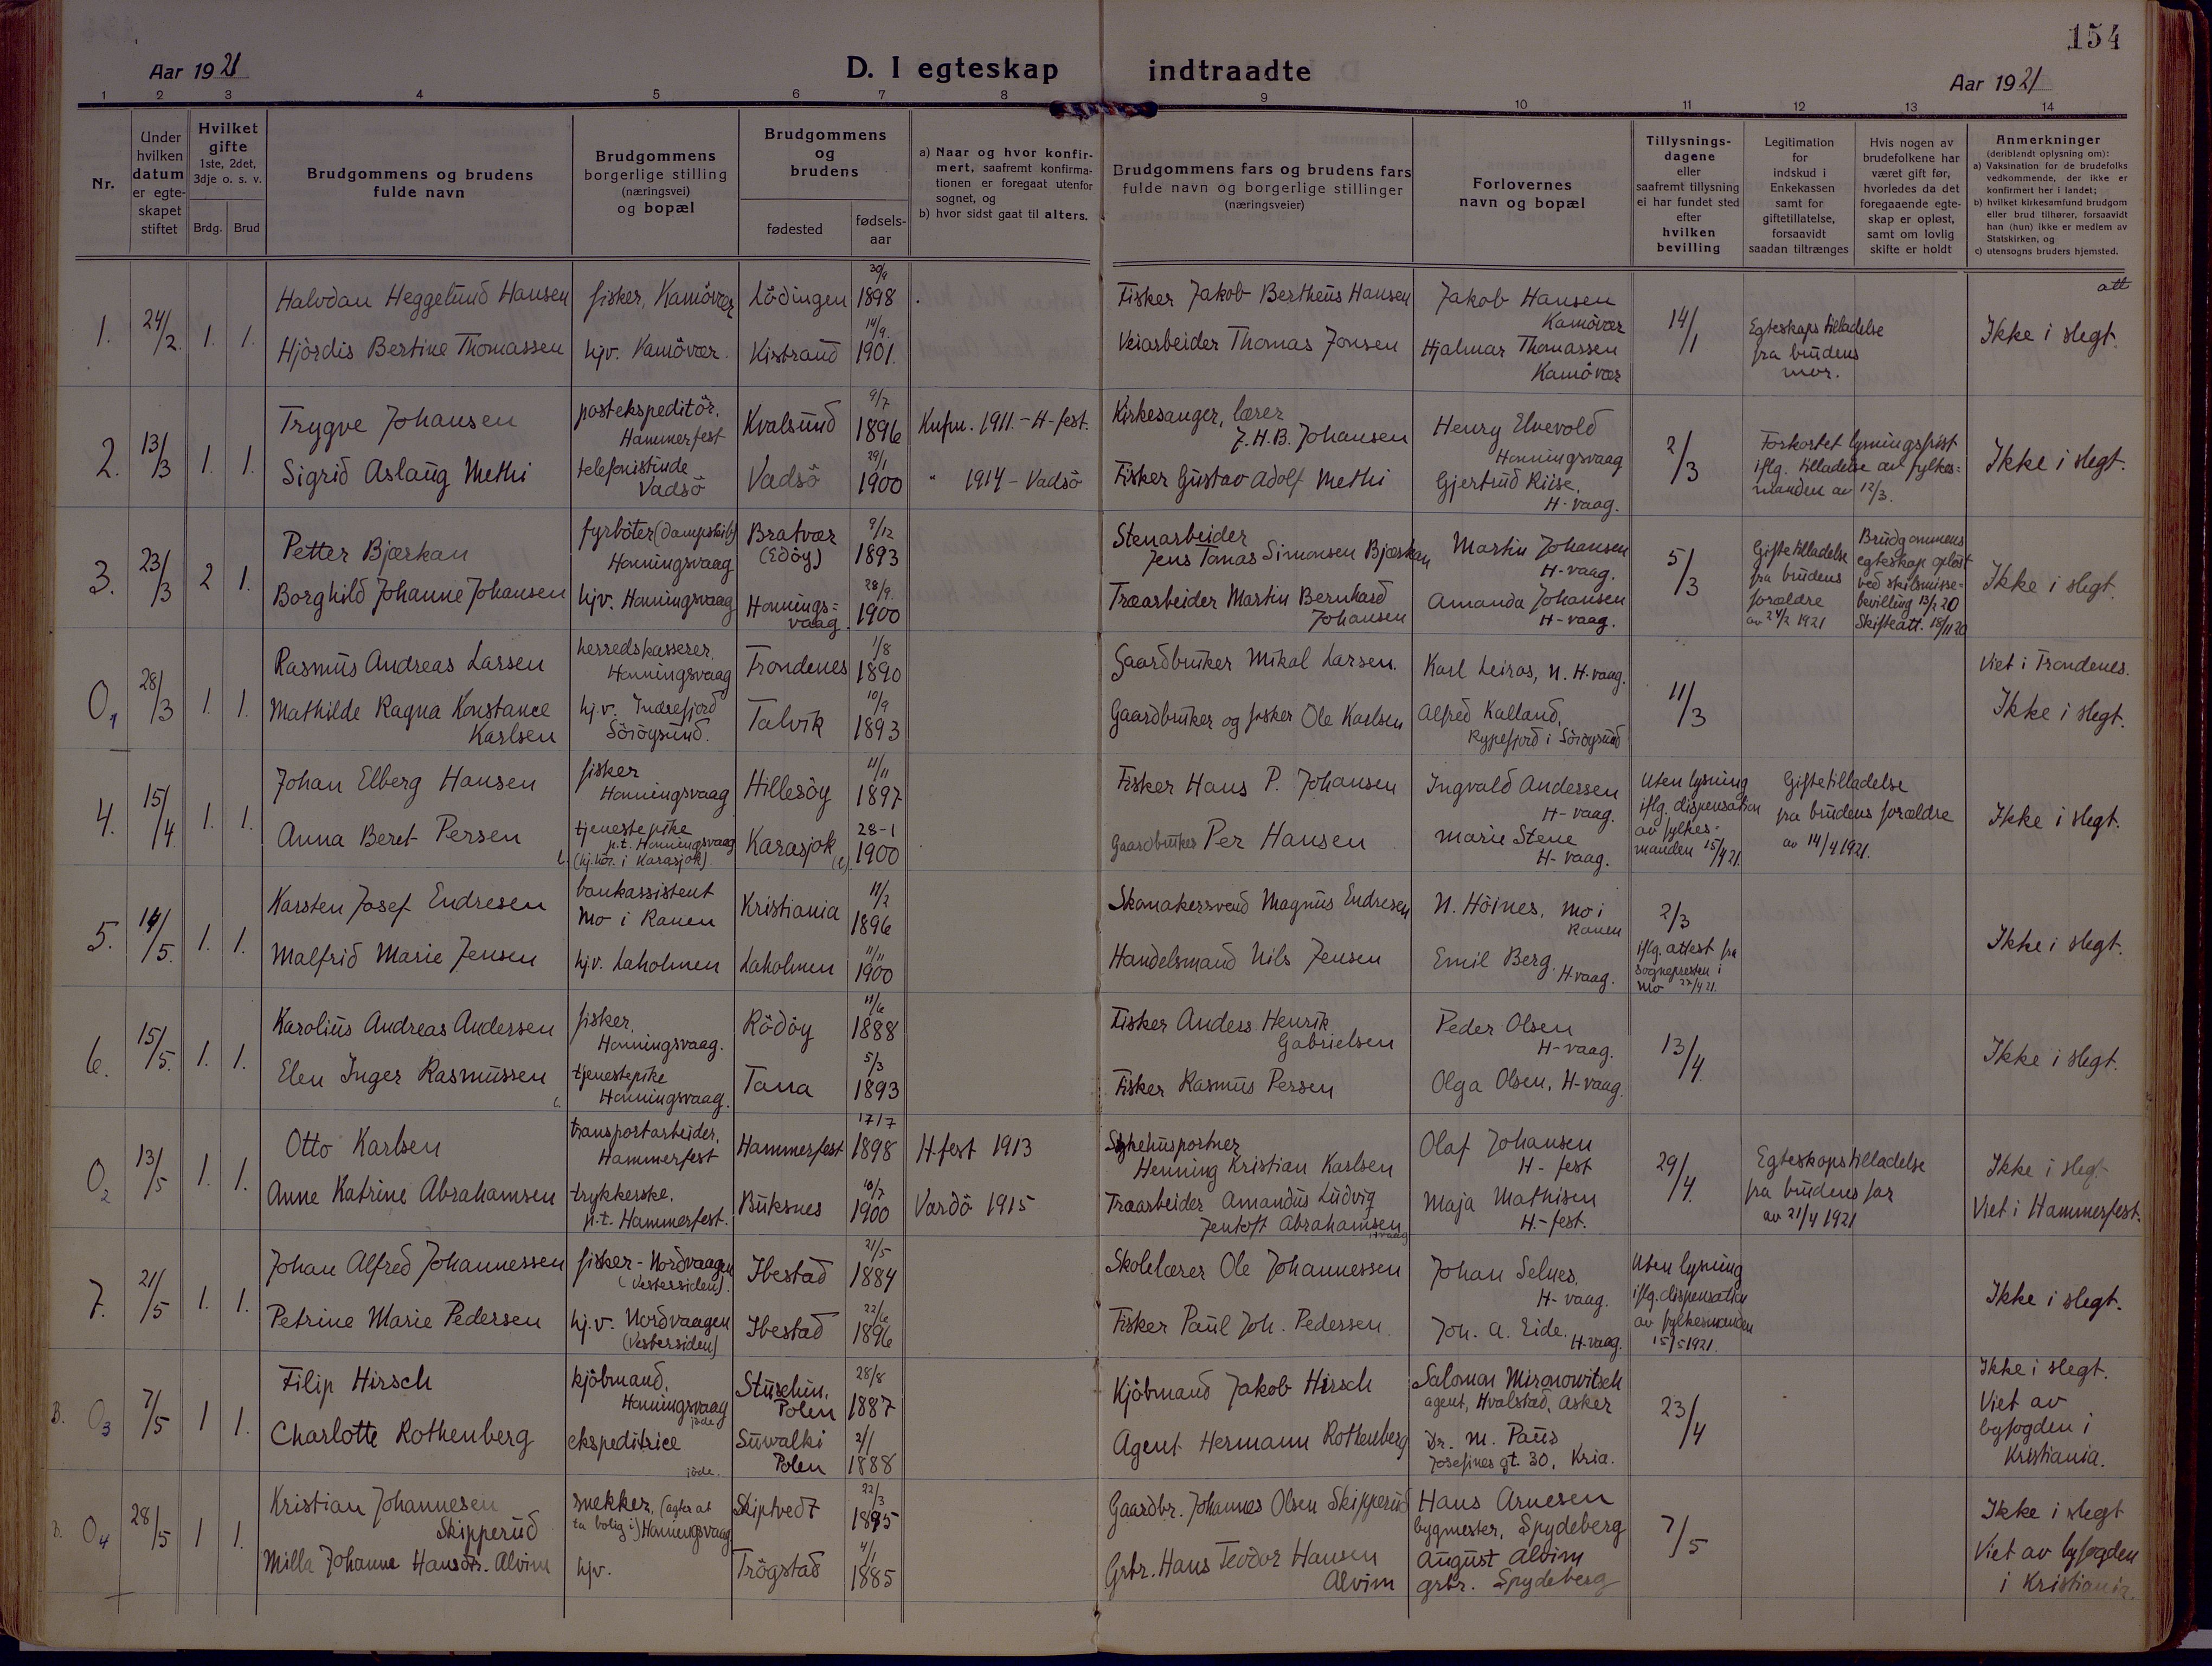 154
Aar 1921
D. I egteskap indtraadte
Aar 1921
1 2 3 4 5 6 7 8 9 10 11 12 13 14
Nr.
Under hvilken datum er egteskapet stiftet
Hvilket gifte 1ste, 2det, 3dje o. s. v.
Brdg. Brud
Brudgommens og brudens fulde navn
Brudgommens borgerlige stilling (næringsvei) og bopæl
Brudgommens og brudens
fødested
fødsels-aar
a) Naar og hvor konfirmert, saafremt konfirmationen er foregaat utenfor sognet, og
b) hvor sidst gaat til alters.
Brudgommens fars og brudens fars fulde navn og borgerlige stillinger (næringsveier)
Forlovernes navn og bopæl
Tillysningsdagene eller saafremt tillysning ei har fundet sted efter hvilken bevilling
Legitimation for indskud i Enkekassen samt for giftetillatelse, forsaavidt saadan tiltrænges
Hvis nogen av brudefolkene har været gift før, hvorledes da det foregaaende egteskap er opløst, samt om lovlig skifte er holdt
Anmerkninger (deriblandt oplysning om):
a) Vaksination for de brudefolks vedkommende, der ikke er konfirmert her i landet;
b) hvilket kirkesamfund brudgom eller brud tilhører, forsaavidt han (hun) ikke er medlem av Statskirken, og
c) utensogns bruders hjemsted.
1. 24/2 1. 1.
Halvdan Heggelund Hansen fisker, Kamövær Lödingen 30/9 1898 Fisker Jakob Bertheus Hansen Jakob Hansen Kamövær 14/1 Egteskapstilladelse fra brudens mor. att Ikke i slegt.
Hjördis Bertine Thomassen hjv. Kamövær. Kistrand 14/9. 1901. Veiarbeider Thomas Jonsen Hjalmar Thomassen Kamövær
2. 13/3 1. 1.
Trygve Johansen postekspeditör, Hammerfest Kvalsund 9/7 1896 Knfm. 1911.-H-fest. Kirkesanger, lærer J.H.B. Johansen Henry Elvevold Honningsvaag 2/3 Forkortet lysningsfrist iflg. tilladelse av fylkesmanden av 12/3. Ikke i slegt.
Sigrid Aslaug Methi telefonistinde Vadsö Vadsö 29/1 1900 " 1914 - Vadsö Fisker Gustav Adolf Methi Gjertrud Riise, H-vaag.
3. 23/3 2 1.
Petter Bjærkan fyrböter (Dampskib) Honningsvaag Bratvær (Edöy) 9/12 1893 Stenarbeider Jens Tomas Simonsen Bjærkan Martin Johansen H-vaag. 5/3 Giftetilladelse fra brudens forældre av 24/2 1921 Brudgommens egteskap oplöst ved skilsmissebevilling 13/2 20 Skifteatt. 18/11 20 Ikke i slegt.
Borghild Johanne Johansen hjv. Honningsvaag Honningsvaag. 28/9. 1900 Træarbeider Martin Bernhard Johansen Amanda Johansen H-vaag.
0 1 28/3 1. 1.
Rasmus Andreas Larsen herredskasserer, Honningsvaag Trondenes 1/8 1890 Gaardbruker Mikal Larsen. Karl Leiros, N. H-vaag. 11/3 Viet i Trondenes. Ikke i slegt.
Mathilde Ragna Konstance Karlsen hj.v. Indrefjord Söröysund. Talvik 10/9 1893 Gaardbruker og fisker Ole Karlsen Alfred Kalland, Rypefjord i Söröysund
4. 15/4 1. 1.
Johan Elberg Hansen fisker Honningsvaag Hillesöy 11/11 1897 Fisker Hans P. Johansen Ingvald Andersen H-vaag. Uten lysning iflg. dispensation av fylkesmanden 15/4 21. Giftetilladelse fra brudens forældre av 14/4 1921. Ikke i slegt.
Anna Beret Persen tjenestepike p.t. Honningsvaag (hj.hör. i Karasjok). Karasjok 28-1 1900 Gaardbruker Per Hansen Marie Stene H-vaag.
5. 14/5. 1. 1.
Karsten Josef Endresen bankassistent Mo i Ranen Kristiania 11/2 1896 Skomakersvend Magnus Endresen N. Höines, Mo i Ranen 2/3 iflg. attest fra sognepresten i Mo 22/4 21. Ikke i slegt.
Malfrid Marie Jensen hj.v. Laholmen Laholmen 11/11 1900 Handelsmand Nils Jensen Emil Berg. H-vaag.
6. 15/5. 1. 1.
Karolius Andreas Andersen fisker, Honningsvaag. Rödöy 11/6 1888 Fisker Anders Henrik Gabrielsen Peder Olsen H-vaag. 13/4 Ikke i slegt.
Elen Inger Rasmussen tjenestepike Honningsvaag. Tana 5/3 1893 Fisker Rasmus Persen Olga Olsen, H-vaag.
0 2 13/5 1. 1.
Otto Karlsen transportarbeider, Hammerfest Hammerfest 17/7 1898 H-fest 1913 Sykehusportner Henning Kristian Karlsen Olaf Johansen H-fest 29/4. Egteskapstilladelse fra brudens far av 21/4 1921 Ikke i slegt Viet i Hammerfest.
Anne Katrine Abrahamsen trykkerske, p.t. Hammerfest. Buksnes 10/7 1900 Vardö 1915 Træarbeider Amandus Ludvig Jentoft Abrahamsen H-vaag Maja Mathisen H.-fest.
7. 21/5 1. 1.
Johan Alfred Johannessen fisker - Nordvaagen (Vestersiden). Ibestad 21/5 1884 Skolelærer Ole Johannessen Johan Selnes. H-vaag. Uten lysning iflg. dispensation av fylkesmanden 15/5 1921. Ikke i slegt.
Petrine Marie Pedersen hj.v. Nordvaagen (Vestersiden) Ibestad 22/6 1896 Fisker Paul Joh. Pedersen Joh. A. Eide. H-vaag.
B. 0 3 7/5 1 1.
Filip Hirsch kjöbmand, Honningsvaag jöde Stuschin, Polen 28/8 1887 Kjöbmand Jakob Hirsch Salomon Mironowitsch agent, Hvalstad, Asker 23/4 Ikke i slegt. Viet av byfogden i Kristiania.
Charlotte Rothenberg ekspeditrice jöde. Suwalki Polen 2/1 1888 Agent Hermann Rothenberg Dr. M. Paus Josefines gt. 30, Kria.
B. 0 4 28/5 1 1.
Kristian Johannesen Skipperud snekker, (agter at ta bolig i) Honningsvaag Skiptvedt 22/3 1895 Gaardbr. Johannes Olsen Skipperud Hans Arnesen bygmester, Spydeberg 7/5 Ikke i slegt Viet av byfogden i Kristiania.
Milla Johanne Hansdtr. Alvim hjv. Trögstad 4/1 1885 Grbr. Hans Teodor Hansen Alvim August Alvim grbr. Spydeberg